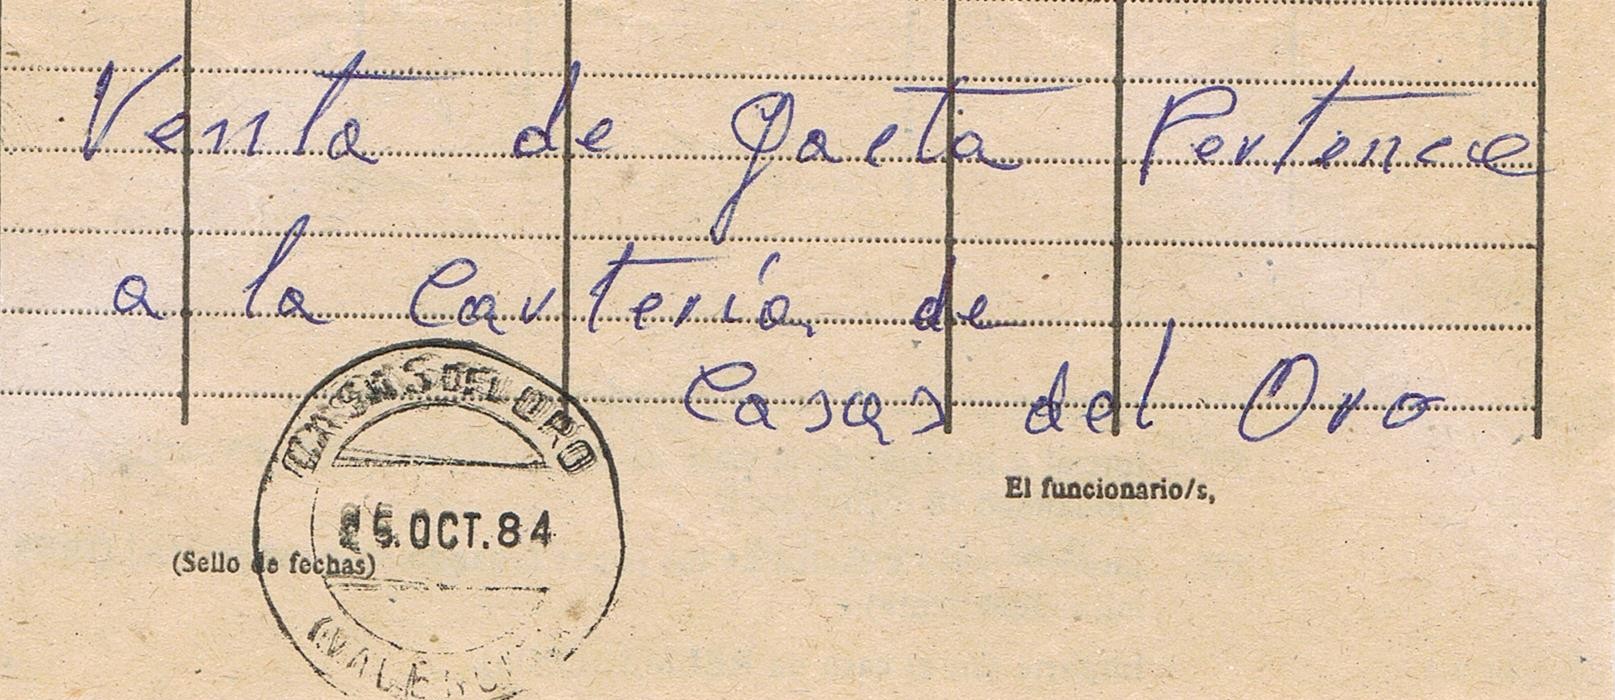 Venta de Gaeta Pertenece
a la Cartería de
Casas del Oro
CASAS DEL ORO
El funcionario/s,
OCT.84
(Sello de fechas)
(VALENCIA)